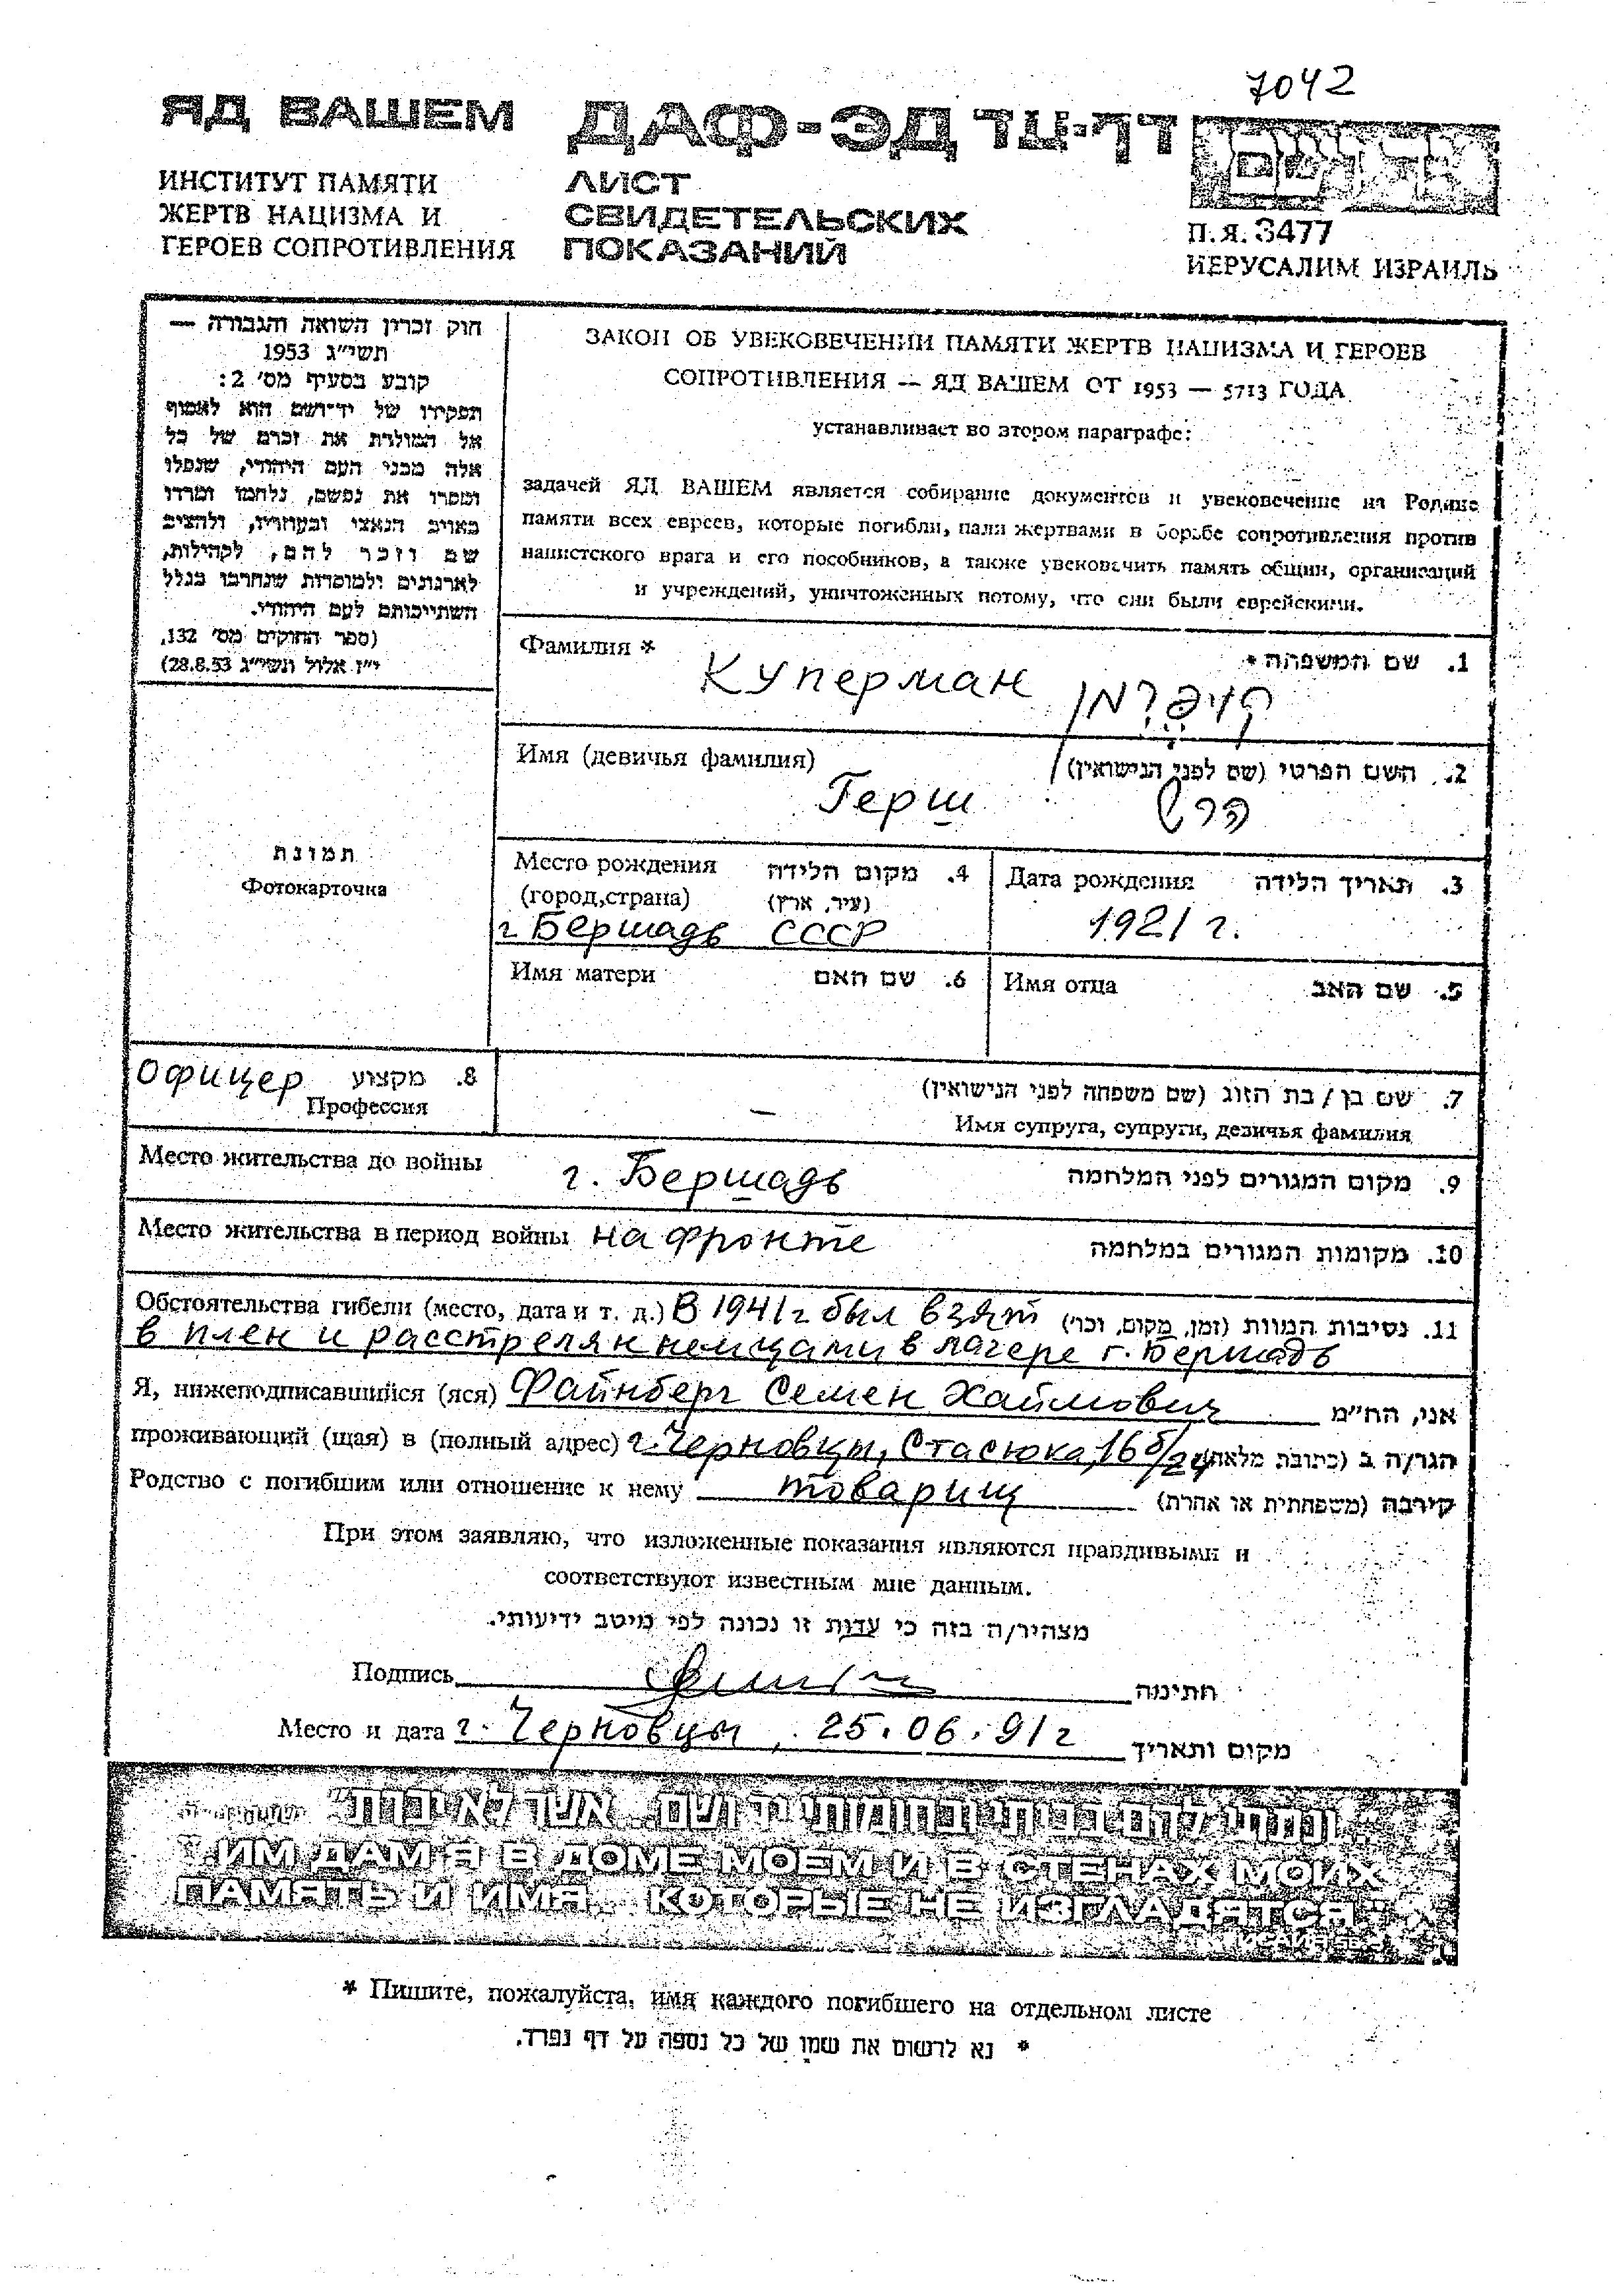 7042
ЯД ВАШЕМ ДАФ-ЭД דף-עד יד ושם
ИНСТИТУТ ПАМЯТИ
ЖЕРТВ НАЦИЗМА И
ГЕРОЕВ СОПРОТИВЛЕНИЯ
ЛИСТ
СВИДЕТЕЛЬСКИХ
ПОКАЗАНИЙ
П.Я. 3477
ИЕРУСАЛИМ ИЗРАИЛЬ
חוק זכרון השואה והגבורה —
תשי״ג 1953
קובע בסעיף מס׳ 2:
תפקידו של יד־ושם הוא לאסוף
אל המולדת את זכרם של כל
אלה מבני העם היהודי, שנפלו
ומסרו את נפשם, נלחמו ומרדו
באויב הנאצי ובעוזריו, ולהציב
שם וזכר להם, לקהילות,
לארגונים ולמוסדות שנחרבו בגלל
השתייכותם לעם היהודי.
(ספר החוקים מס׳ 132,
י״ז אלול תשי״ג 28.8.53)
ЗАКОН ОБ УВЕКОВЕЧЕНИИ ПАМЯТИ ЖЕРТВ НАЦИЗМА И ГЕРОЕВ
СОПРОТИВЛЕНИЯ — ЯД ВАШЕМ ОТ 1953 — 5713 ГОДА
устанавливает во втором параграфе:
задачей ЯД ВАШЕМ является собирание документов и увековечение на Родине
памяти всех евреев, которые погибли, пали жертвами в борьбе сопротивления против
нацистского врага и его пособников, а также увековечить память общин, организаций
и учреждений, уничтоженных потому, что они были еврейскими.
Фамилия * 1. שם המשפחה *
Куперман קופרמן
Имя (девичья фамилия) 2. השם הפרטי (שם לפני הנישואין)
Герш הרש
תמונה
Фотокарточка
Место рождения 4. מקום הלידה
(город,страна) (עיר, ארץ)
г Бершадь СССР
Дата рождения 3. תאריך הלידה
1921 г.
Имя матери 6. שם האם
Имя отца 5. שם האב
Офицер 8. מקצוע
Профессия
7. שם בן / בת הזוג (שם משפחה לפני הנישואין)
— Имя супруга, супруги, девичья фамилия
Место жительства до войны г. Бершадь 9. מקום המגורים לפני המלחמה
Место жительства в период войны на фронте 10. מקומות המגורים במלחמה
Обстоятельства гибели (место, дата и т. д.) В 1941г был взят 11. נסיבות המוות (זמן, מקום, וכו׳)
в плен и расстрелян немцами в лагере г. Бершадь
Я, нижеподписавшийся (яся) Файнберг Семен Хаймович אני, הח״מ
проживающий (щая) в (полный адрес) г. Черновцы, Стасюка, 16 б/24 הגר/ה ב (כתובת מלאה)
Родство с погибшим или отношение к нему товарищ קירבה (משפחתית או אחרת)
При этом заявляю, что изложенные показания являются правдивыми и
соответствуют известным мне данным.
מצהיר/ה בזה כי עדות זו נכונה לפי מיטב ידיעותי.
Подпись חתימה
Место и дата г. Черновцы, 25.06.91г מקום ותאריך
״ונתתי להם בביתי ובחומותי יד ושם... אשר לא יכרת״
"ИМ ДАМ Я В ДОМЕ МОЕМ И В СТЕНАХ МОИХ
ПАМЯТЬ И ИМЯ... КОТОРЫЕ НЕ ИЗГЛАДЯТСЯ."
* Пишите, пожалуйста, имя каждого погибшего на отдельном листе
* נא לרשום את שמו של כל נספה על דף נפרד.